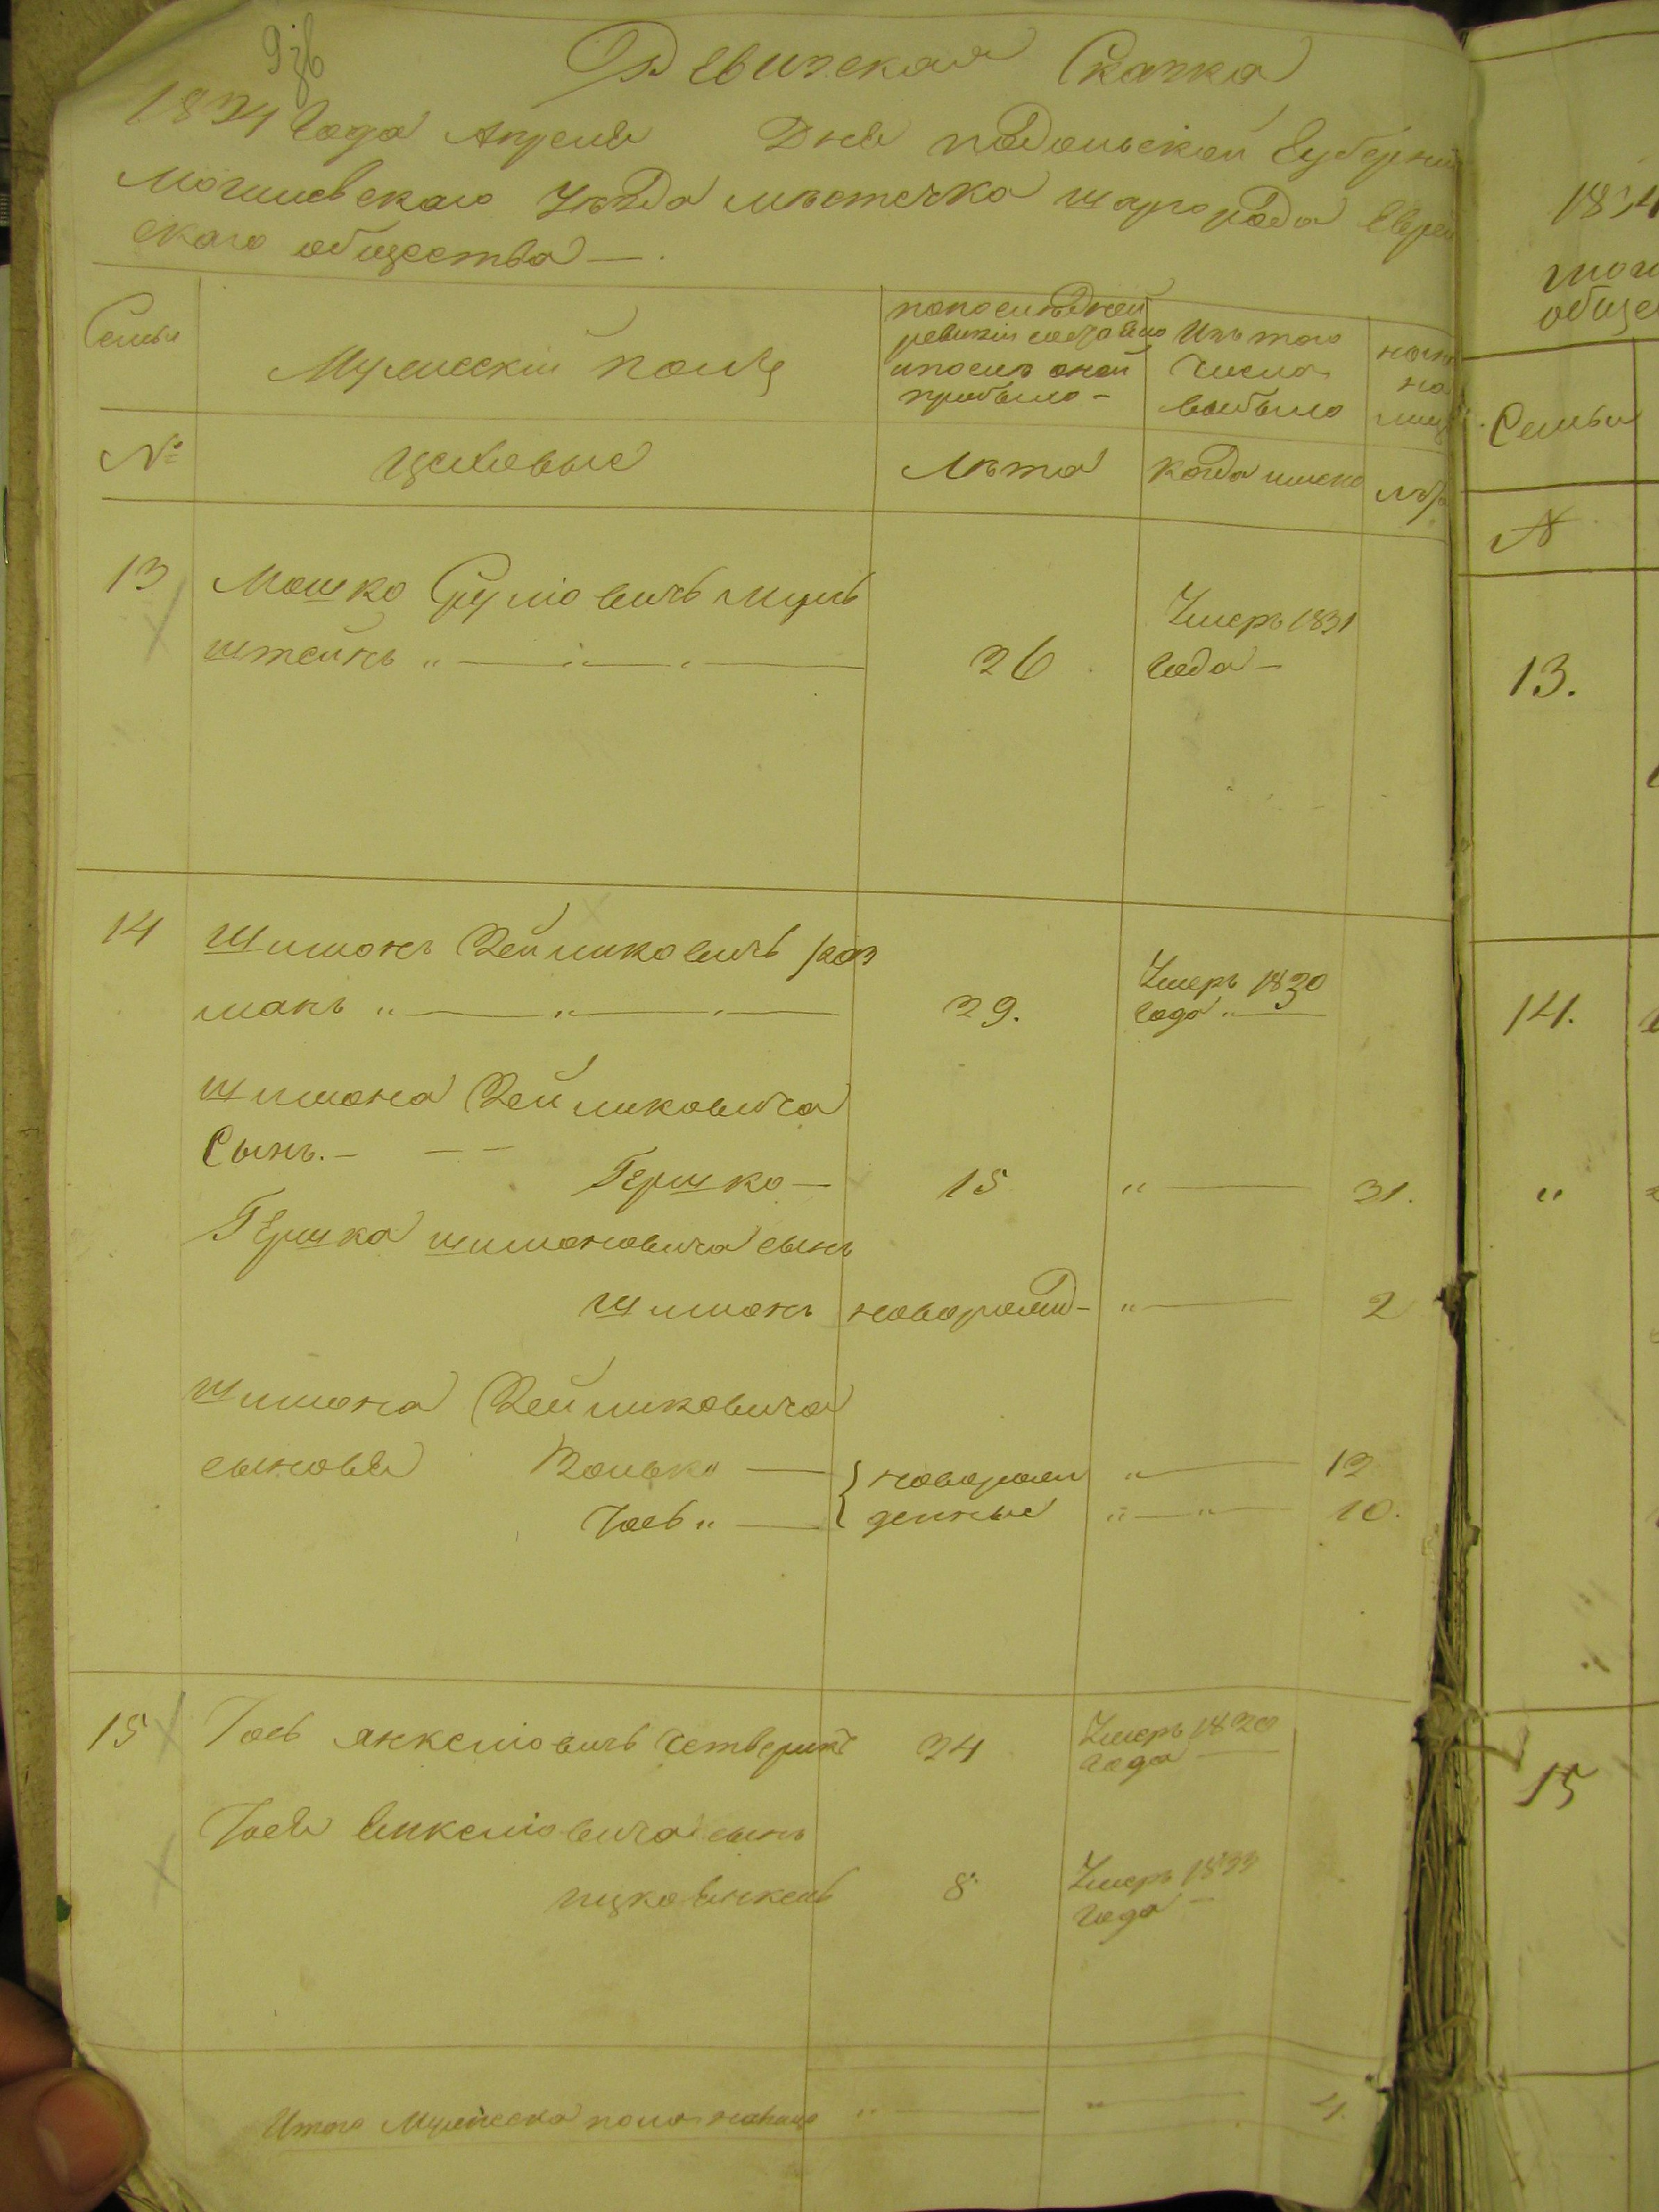 Ревизская Сказка
1834 года Апреля Дня подольской Губернии
Могилевскаго Уѣзда мѣстечка шаргорода Еврей
скаго общества —.
Семьи
Мужеский полъ
по последней
ревизіи состояло
и после оной
прибыло —
Изъ того
числа
выбыло
ныне
на
лицо
№
Лѣта
когда именно
лѣта
13
Мошко Сруліовичъ Миль
штейнъ
26
Умеръ 1831
года —
14
Шимонъ Зейликовичъ роз
манъ
29.
Умеръ 1830
года
Шимона Зейликовича
Сынъ. —
Гершко —
15
31.
Гершка шимоновича сынъ
Шимонъ
новорожд —
2
Шимона Зейликовича
сыновья Волько —
новорожденные
12
Іось —
10.
15
Іось янкеліовичъ Четверикъ
24
Умеръ 1829
года —
Іося янкеліовича сынъ
ицко янкель
8
Умеръ 1833
года —
Итого Мужеска пола налицо
4.
1834
общес
Семьи
№
13.
14.
15